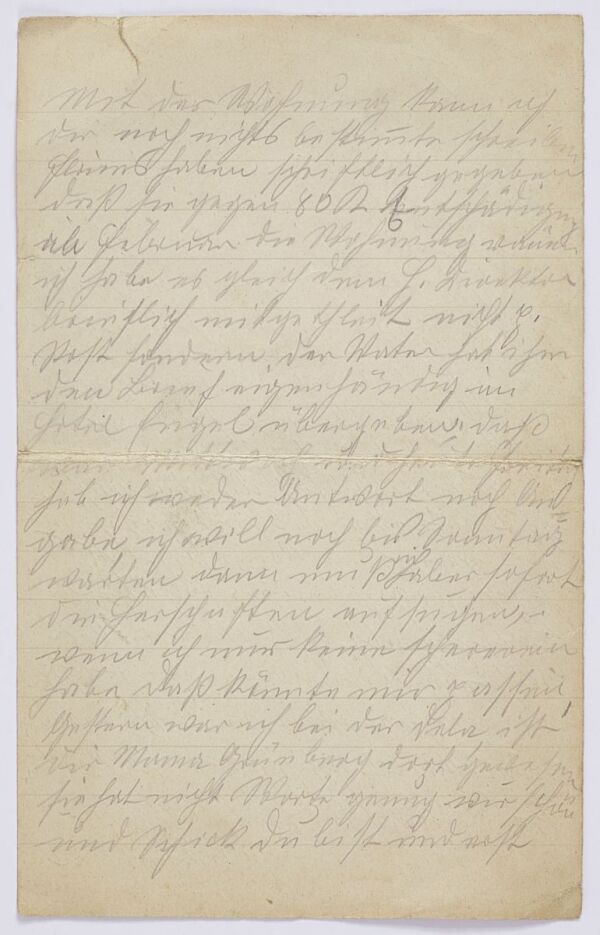 Mit der Wohnung kann ich
dir noch nichts bestimmte schreiben
haben schriftlich gegeben
daß sie gegen 80 K Entschädigung
ab Februar die Wohnung räumt
ich habe es gleich dem H. Direktor
brieflich mitgetheilt nicht p.
Post sondern der Vater hat ihm
den Brief eigenhändig im
Hotel Engel übergeben, daß
war Mittwoch heute
hab ich weder Antwort noch
gabe, ich will noch bis Sonntag
warten dann muß ich aber sofort
die Herschaften aufsuchen, -
wenn ich nur keine schererein
habe daß könnte mir passen,
Gestern war ich bei der Dela ist
die Mama Grünberg dort gewesen
sie hat nicht Worte genug wie schön
und Schick du bist und erst